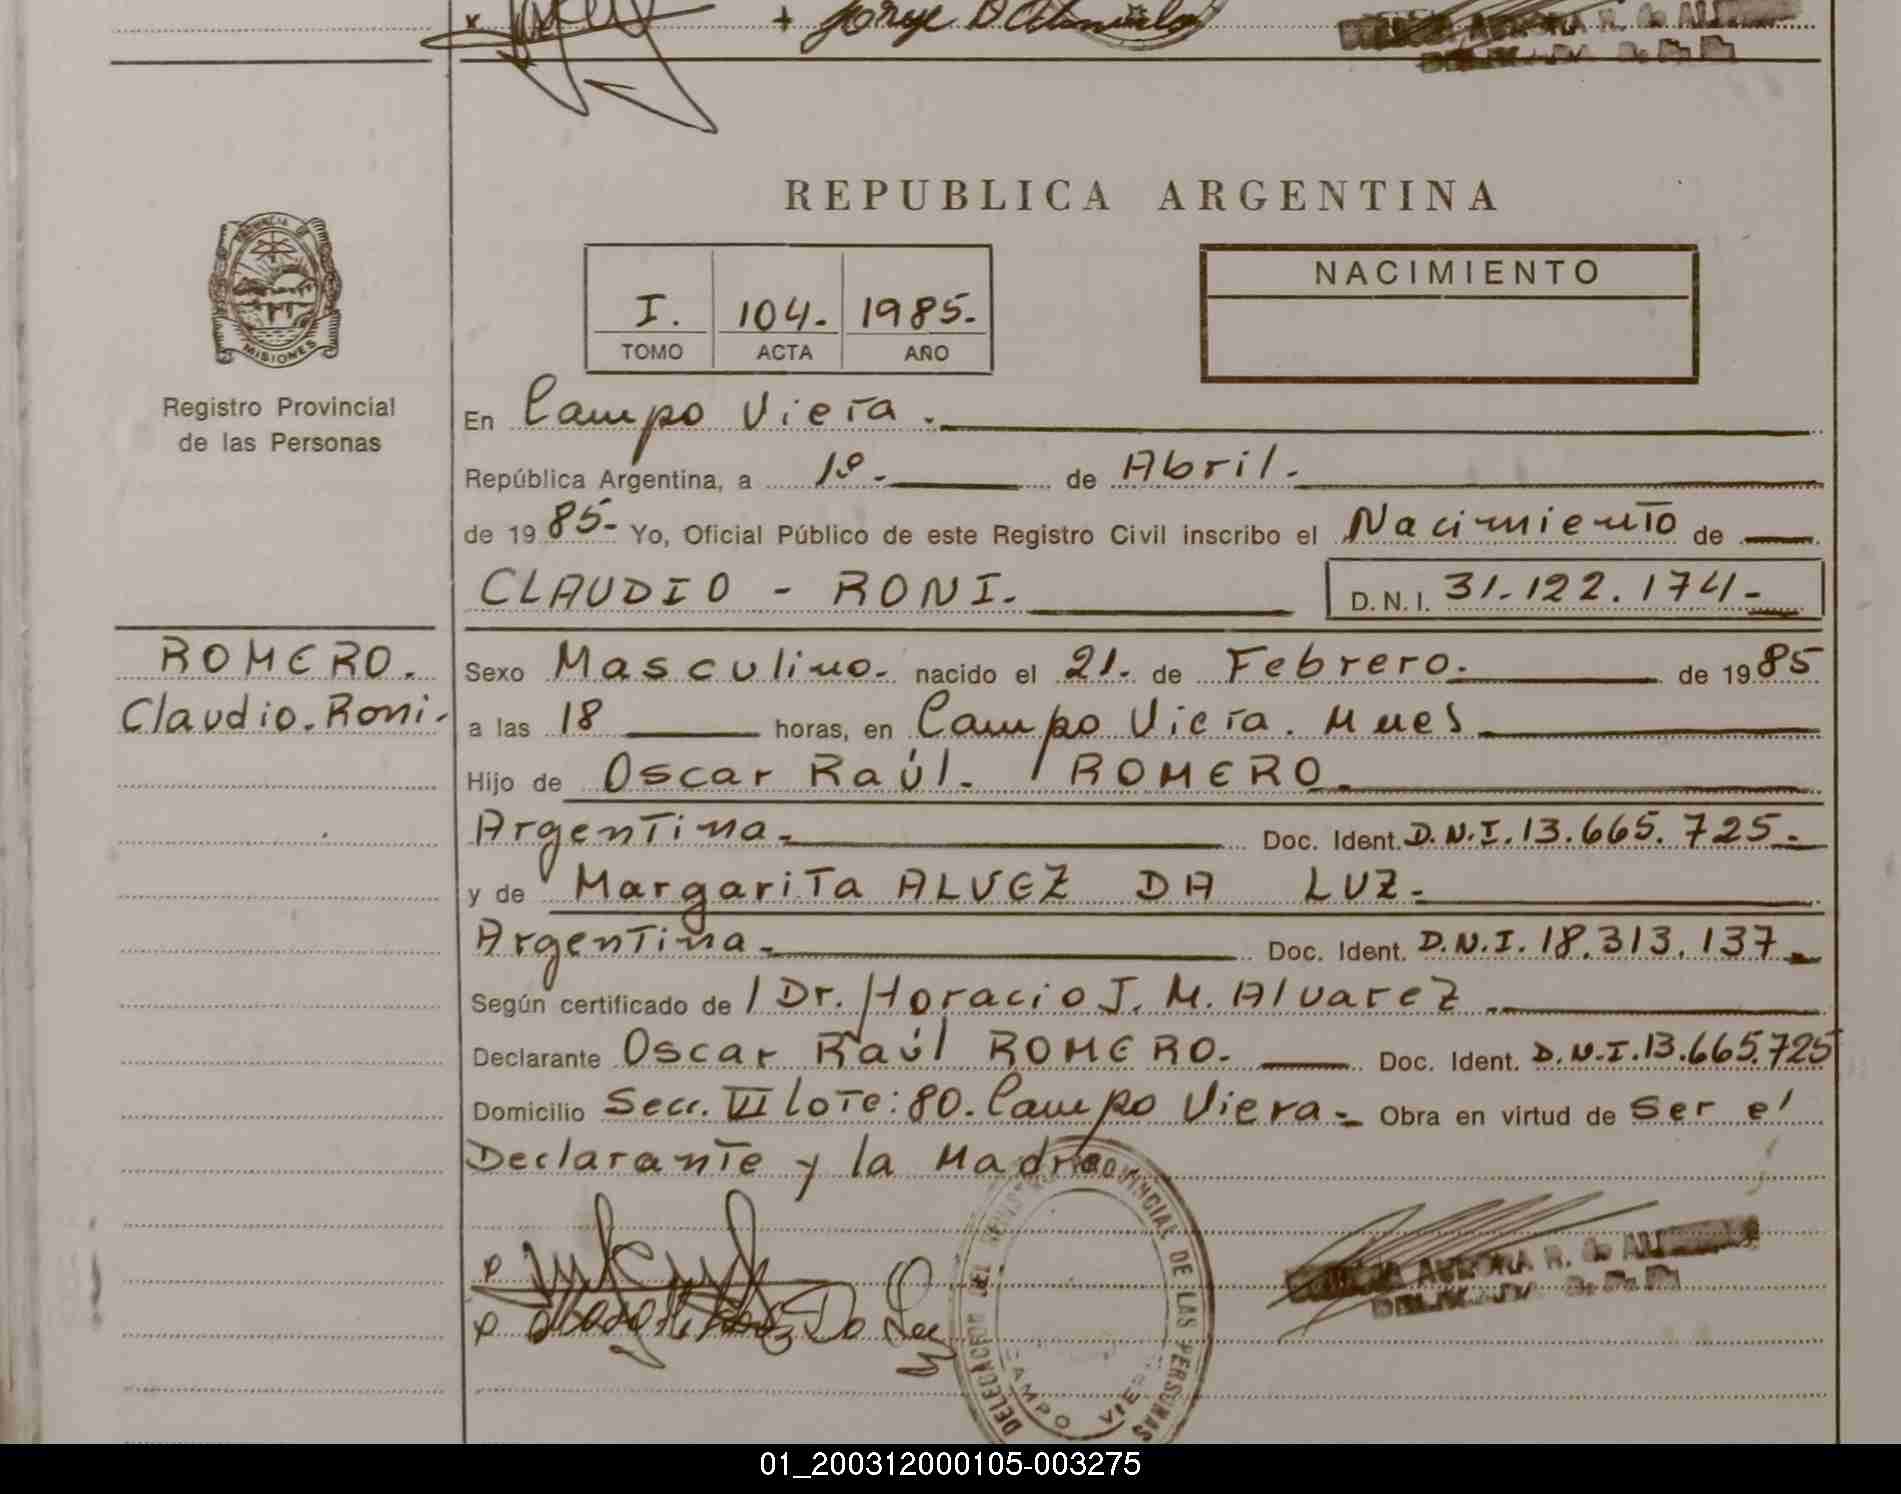 Jorge D
REPUBLICA ARGENTINA
PROVINCIA DE
MISIONES
Registro Provincial
de las Personas
I. 104. 1985.
TOMO ACTA AÑO
NACIMIENTO
En Campo Viera.
República Argentina, a 1º. de Abril.
de 1985. Yo, Oficial Público de este Registro Civil inscribo el Nacimiento de
CLAUDIO - RONI. D.N.I. 31.122.174
ROMERO.
Claudio. Roni.
Sexo Masculino. nacido el 21. de Febrero. de 1985
a las 18 horas, en Campo Viera. Mnes
Hijo de Oscar Raúl. ROMERO.
Argentina. Doc. Ident. D.N.I. 13.665.725.
y de Margarita ALVEZ DA LUZ.
Argentina. Doc. Ident. D.N.I. 18.313.137
Según certificado de Dr. Horacio J. M. Alvarez
Declarante Oscar Raúl ROMERO. Doc. Ident. D.N.I. 13.665.725
Domicilio Secc. VI lote: 80. Campo Viera. Obra en virtud de Ser el
Declarante y la Madre.
Da Luz
DELEGACION PROVINCIAL DE LAS PERSONAS
CAMPO VIERA
AURORA R. de
01_200312000105-003275